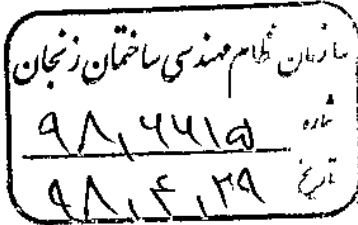 سازمان نظام مهندسی ساختمان زنجان
شماره ۹۸,۶۶۱۵
تاریخ ۹۸,۴,۲۹